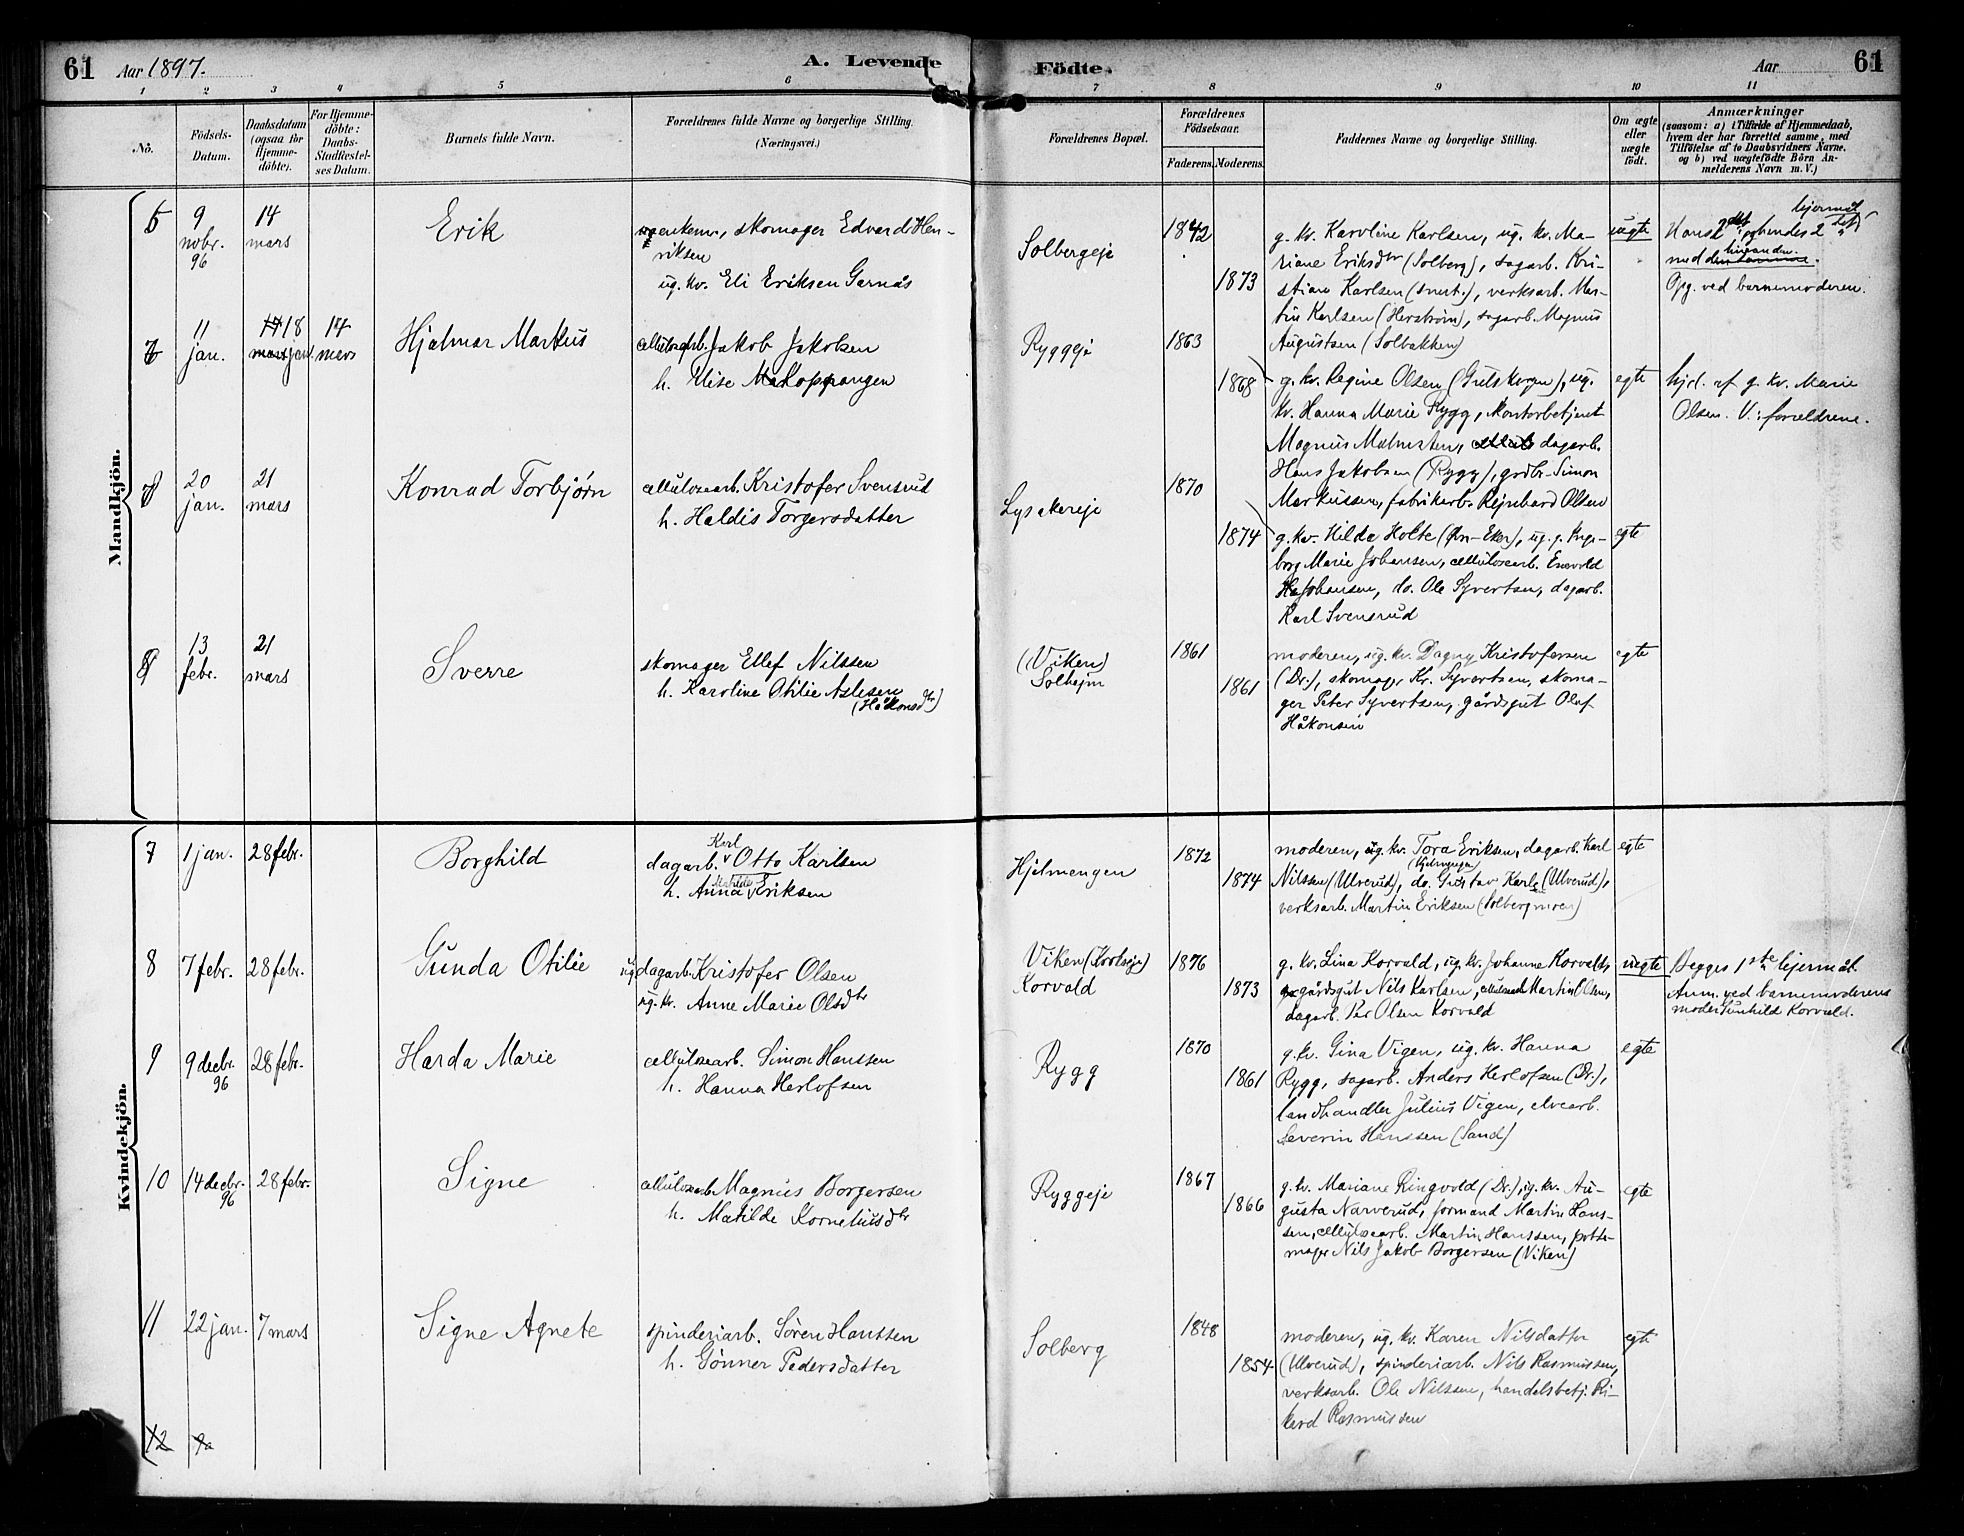 61 Aar 1897. A. Levende Födte. Aar 61
1 2 3 4 5 6 7 8 9 10 11
No.
Födsels-
Datum.
Daabsdatum
(ogsaa for
Hjemme-
döbte).
For Hjemme-
döbte:
Daabs-
Stadfæstel-
ses Datum.
Barnets fulde Navn.
Forældrenes fulde Navne og borgerlige Stilling.
(Næringsvei.)
Forældrenes Bopæl.
Forældrenes
Födselsaar.
Faderens. Moderens.
Faddernes Navne og borgerlige Stilling.
Om ægte
eller
uægte
født.
Anmærkninger
(saasom: a) i Tilfælde af Hjemmedaab,
hvem der har forrettet samme, med
Tilföielse af to Daabsvidners Navne,
og b) ved uægtefödte Börn An-
melderens Navn m. V.)
Mandkjön.
5
9
novbr.
96
14
mars
Erik
enkem., skomager Edvard Hen-
riksen
ug. kv. Eli Eriksen Garnås
Solbergeje
1842
1873
g. kv. Karoline Karlsen, ug. kv. Ma-
riane Eriksdtr (Solberg), sagarb. Kri-
stian Karlsen (), verksarb. Mar-
tin Karlsen (Herstrøm), sagarb. Magnus
Augustsen (Solbakken)
uegte
Hans 2det og hendes 2det lejermål
med hinanden.
Opg. ved barnemoderen.
11
jan.
18
jan
14
mars
Hjalmar Markus
cellulosearb. Jakob Jakobsen
h. Elise Kopperangen
Ryggeje
1863
1868
g. kv. Regine Olsen (Gulskogen), ug.
kv. Hanna Marie Rygg, kontorbetjent
Magnus Malmsten, dagarb.
Hans Jakobsen (Rygg), grdbr. Simon
Markussen, fabrikarb. Rejnhard Olsen
egte
hjd. af g. kv. Marie
Olsen. V.: forældrene.
7
20
jan.
21
mars
Konrad Torbjørn
cellulosearb. Kristofer Svensrud
h. Haldis Torgersdatter
Lysakereje
1870
1874
g. kv. Hilda Holte (Øvn-Eker), ug. p. Inge-
borg Marie Johansen, cellulosearb. Enevold
Johansen, do. Ole Syvertsen, dagarb.
Karl Svensrud
egte
8
13
febr.
21
mars
Sverre
skomager Ellef Nilssen
h. Karoline Otilie Aslesen
(Håkonsdtr)
(Viken)
Solhejm
1861
1861
moderen, ug. kv. Dagny Kristofersen
(Dr.), skomager Kr. Syvertsen, skoma-
ger Peter Syvertsen, gårdsgut Olaf
Håkonsen
egte
Kvindekjön.
7
1 jan.
28 febr.
Borghild
Karl
dagarb. Otto Karlsen
Matilde
h. Anna Eriksen
Hjelmengen
1872
1874
moderen, ug. kv. Tora Eriksen, dagarb. Karl
Nilssen (Ulverud), do. Gustav Karlsen (Ulverud),
verksarb. Martin Eriksen (Solbergmoen)
egte
8
7 febr.
28 febr.
Gunda Otilie
ug. dagarb. Kristofer Olsen
ug. kv. Anne Marie Olsdtr
Viken (Korlseje)
Korvald
1876
1873
g. kv. Lina Korvald, ug. kv. Johanne Korvald,
gårdsgut Nils Karlsen, cellulosearb. Martin Olsen,
dagarb. Per Olsen Korvald
uegte
Begges 1ste lejermål.
Anm. ved barnemoderens
moder Gunhild Korvald.
9
9 decbr.
96
28 febr.
Harda Marie
cellulosearb. Simon Hanssen
h. Hanna Herlofsen
Rygg
1870
1861
g. kv. Gina Vigen, ug. kv. Hanna
Rygg, sagarb. Anders Herlofsen (Dr.),
landhandler Julius Vigen, elvearb.
Severin Hanssen (Sand)
egte
10
14 decbr.
96
28 febr.
Signe
cellulosearb. Magnus Borgersen
h. Matilde Korneliusdtr
Ryggeje
1867
1866
g. kv. Mariane Ringvold (Dr.), ug. kv. Au-
gusta Narverud, formand Martin Hans-
sen, cellulosearb. Martin Hanssen, potte-
mager Nils Jakob Borgersen (Viken)
egte
11
22 jan.
7 mars
Signe Agnete
spinderiarb. Søren Hanssen
h. Gønner Pedersdatter
Solberg
1848
1854
moderen, ug. kv. Karen Nilsdatter
(Ulverud), spinderiarb. Nils Rasmussen,
verksarb. Ole Nilssen, handelsbetj. Ri-
kard Rasmussen
egte
12